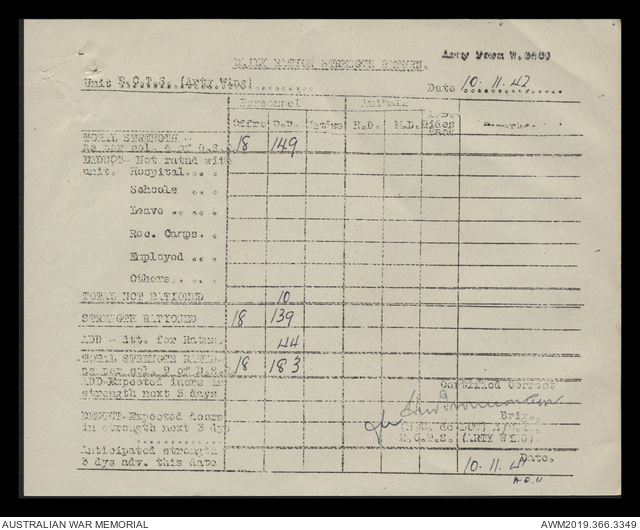 Army Form W.
STRENGTH RETURN.
Unit (Arty Wing) Date 10.11.42
Personnel Animals
Offrs O.R. Native H.D. M.D.
TOTAL STRENGTH 18 149
DEDUCT - Not ratnd with
unit. Hospital....
Schools ..
Leave .. .. ..
Rec. Camps. .
Employed .. .
Others.. . .
TOTAL NOT RATIONED 10
STRENGTH RATIONED 18 139
ADD - Att. for Ratns. 44
TOTAL STRENGTH 18 183
ADD-Expected incrs in
strength next 3 days
Certified Correct
DEDUCT-Expected
in strength next 3 dys
(ARTY WING).
Anticipated strength
3 dys adv. this date
Date.
10.11.
AUSTRALIAN WAR MEMORIAL
AWM2019.366.3349